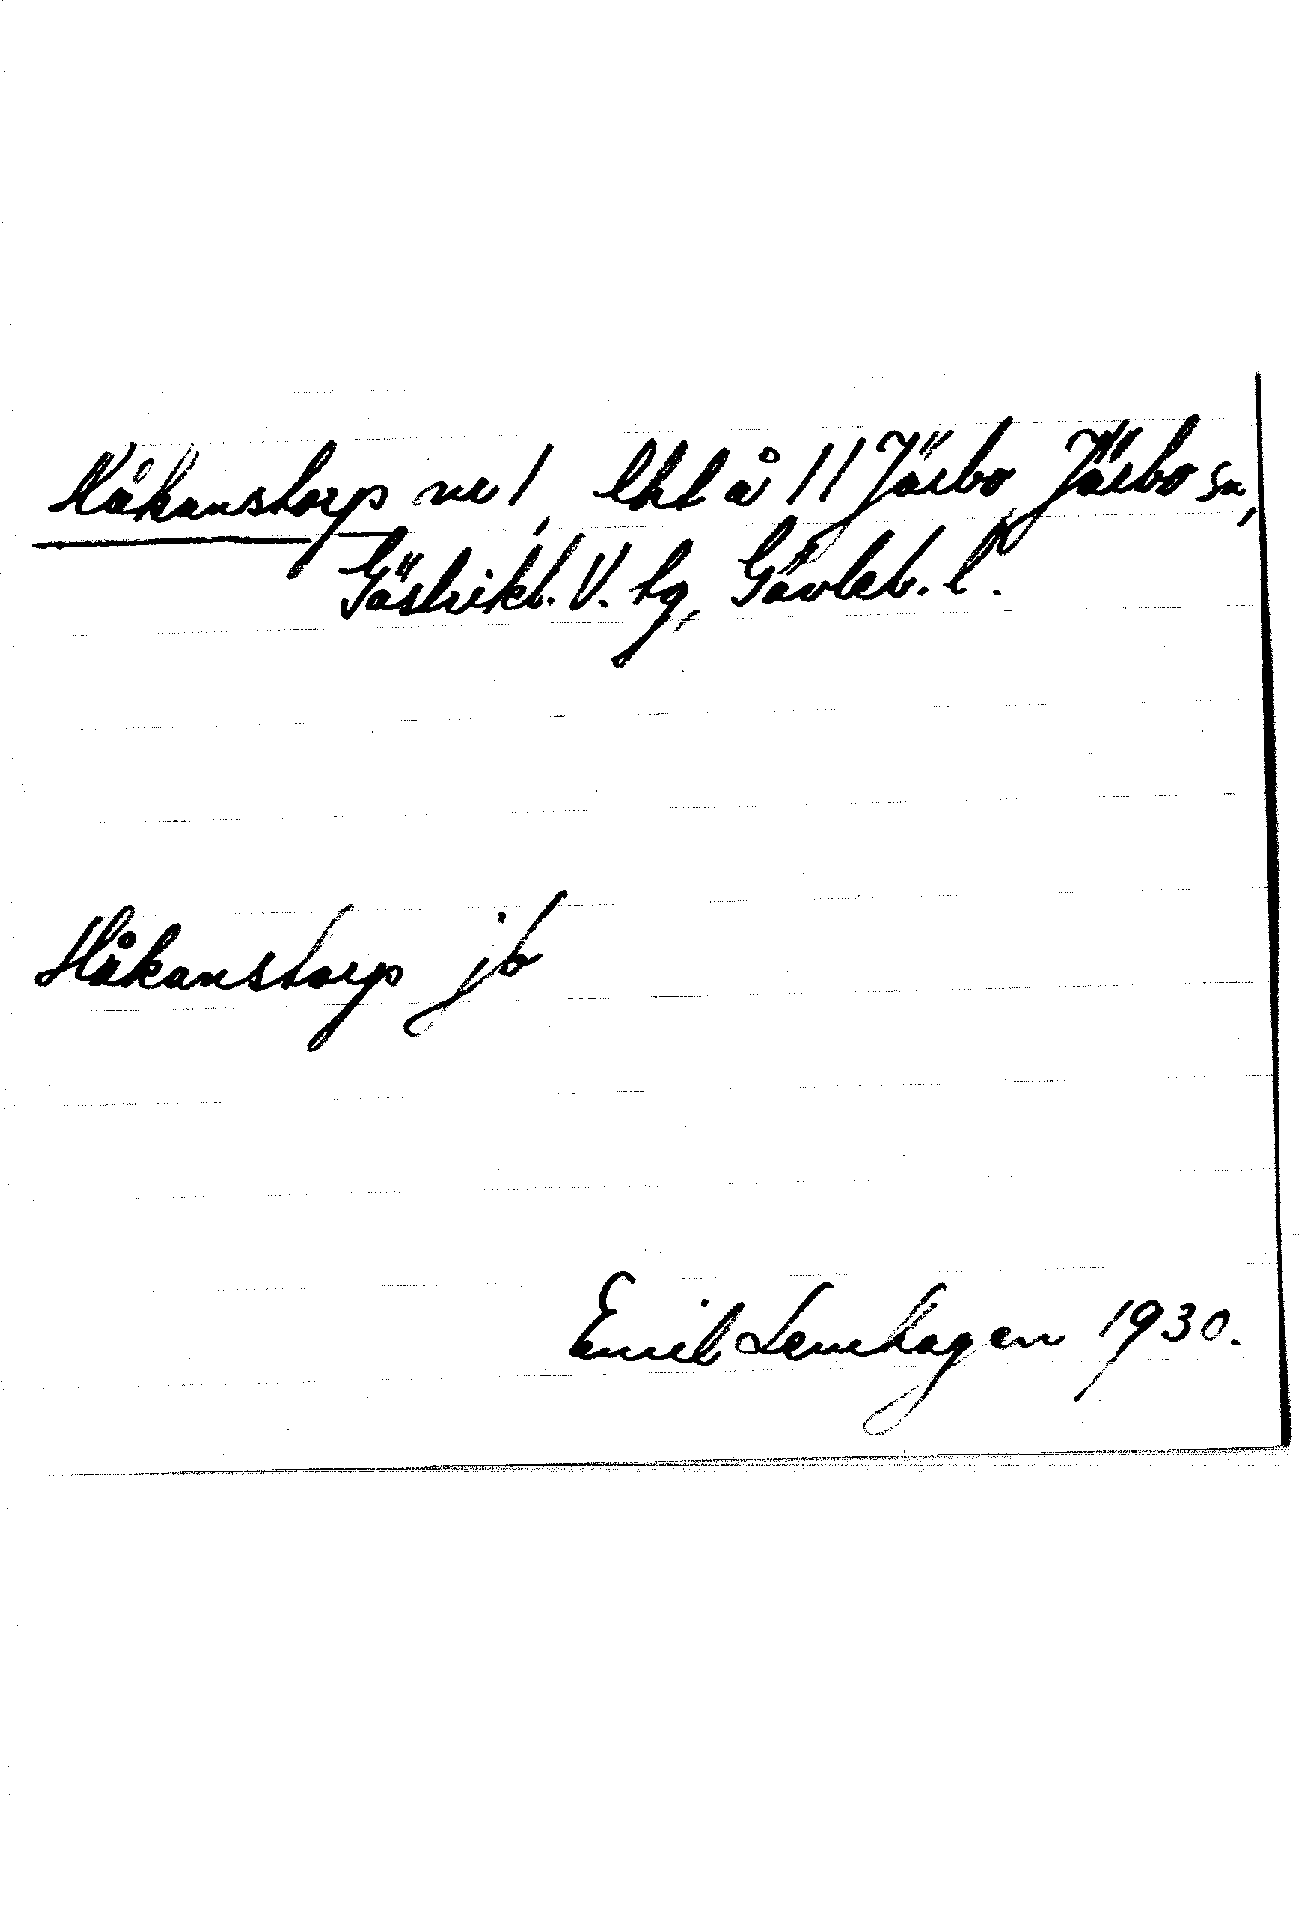 Håkanstorp nr 1, lht å 11 Järbo Järbo sn,
Gästrikl. V. tg, Gävleb. l.
Håkanstorp jb
Emil Lenhagen 1930.